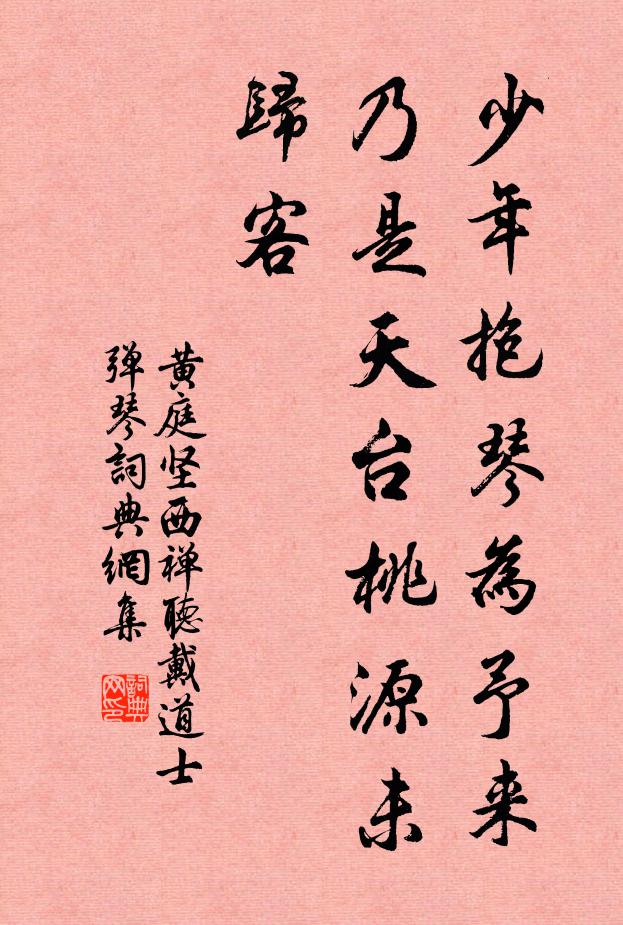 少年抱琴為予来
乃是天台桃源未
歸客
黄庭坚西禅聽戴道士
弹琴詞典網集
詞典網印